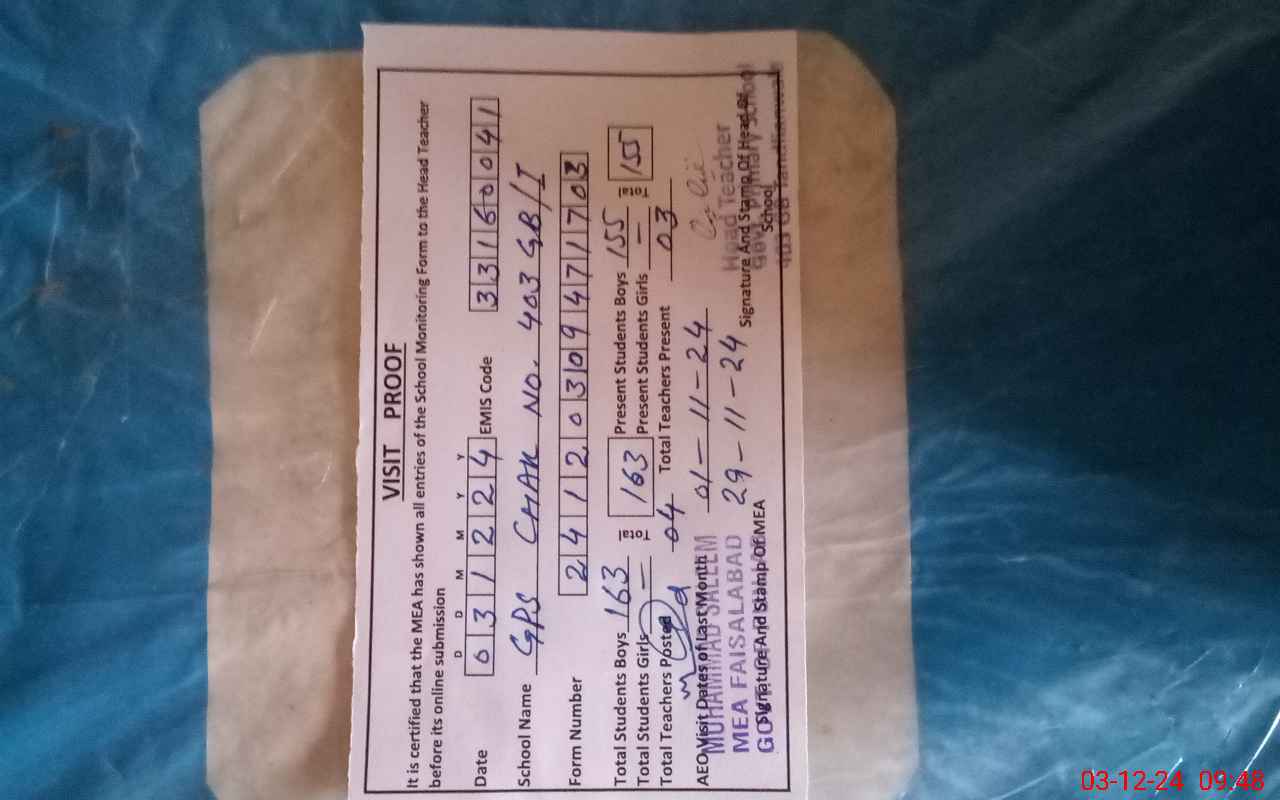 VISIT PROOF
It is certified that the MEA has shown all entries of the School Monitoring Form to the Head Teacher
before its online submission
D D M M Y Y
Date 0 3 1 2 2 4 EMIS Code 3 3 1 6 0 0 4 1
School Name GPS CHAK NO. 403 GB/I
Form Number 2 4 1 2 0 3 0 9 4 7 1 7 0 3
Total Students Boys 163 Total 163 Present Students Boys 155 Total 155
Total Students Girls — Present Students Girls —
Total Teachers Posted 04 Total Teachers Present 03
AEO Visit Dates of Last Month 01-11-24
29-11-24
MUHAMMAD SALEEM
MEA FAISALABAD
Signature And Stamp Of MEA
Head Teacher
Govt. Primary School
403 GB
Signature And Stamp Of Head Of
School
03-12-24 09:48